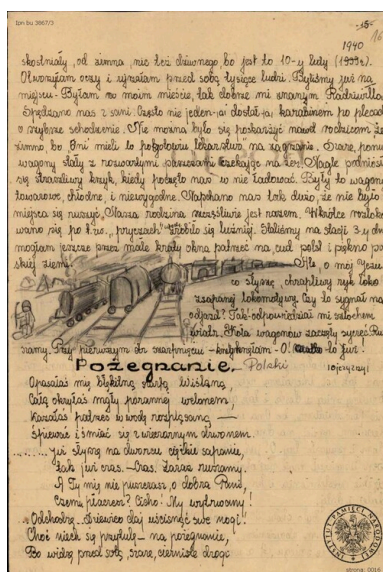 Ipn bu 3667/3
-15-
16
1940
skostniały, od zimna, nic też dziwnego, bo jest to 10-y luty
Otworzyłam oczy i ujrzałam przed sobą tysiące ludzi. Byliśmy już na
miejscu. Byłam w moim mieście, tak dobrze mi znanym Radziwiłł
Spędzano nas z sani. Często nie jeden dostał karabinem po plecach
o szybsze schodzenie. Nie można było się poskarżyć nawet rodzicom, że
zimno, bo oni mieli to pogotowiu lekarstwo, na zagranie. Szare, ponu
wagony stały z rozwartymi czekając na żer. Nagle podniósł
się straszliwy krzyk, kiedy poczęto nas w nie ładować. Były to wagony
towarowe, chłodne, i niewygodne. Napchano nas tak dużo, że nie było
miejsca się ruszyć. Nasza rodzina szczęśliwie jest razem. Wkrótce rozloko
wano się po t. zw. "pryczach" zrobiło się luźniej. Staliśmy na stacji 3-y dni
mogłam jeszcze przez małe kraty okna patrzeć na cud pól i piękno po
skiej ziemi.
Ale, o mój Jezu
co słyszę, chrapliwy ryk loko
zasapanej lokomotywy. Czy to sygnał na
odjazd? Tak odpowiedział mi szlochem
wiatr. Koła wagonów zaczęły
szamy. Przy pierwszym szarpnięciu krzyknęłam - O! to już!
Pożegnanie Polski
ojczyzny!
Opasałaś mię błękitną szarfą Wiślaną,
Całą okryłaś mgły porannej welonem,
Kazałaś pędzić w wodę rozpląsaną —
Śpiewać i śmiać się z wieczornym dzwonem.
...... Już słyszę na dworze ciężkie sapanie,
Żak już czas. - Czas. Zaraz ruszamy.
A Ty mię nie puszczasz, o dobra Pani,
Czemu płaczesz? Cicho! My wytrwamy!
Odchodzę. drzewiec daj uścisnąć swe nogi!
Choć niech się przytulę - na pożegnanie,
Bo widzę przed sobą szare, cierniste drogi
INSTYTUT PAMIĘCI NARODOWEJ
strona: 0016